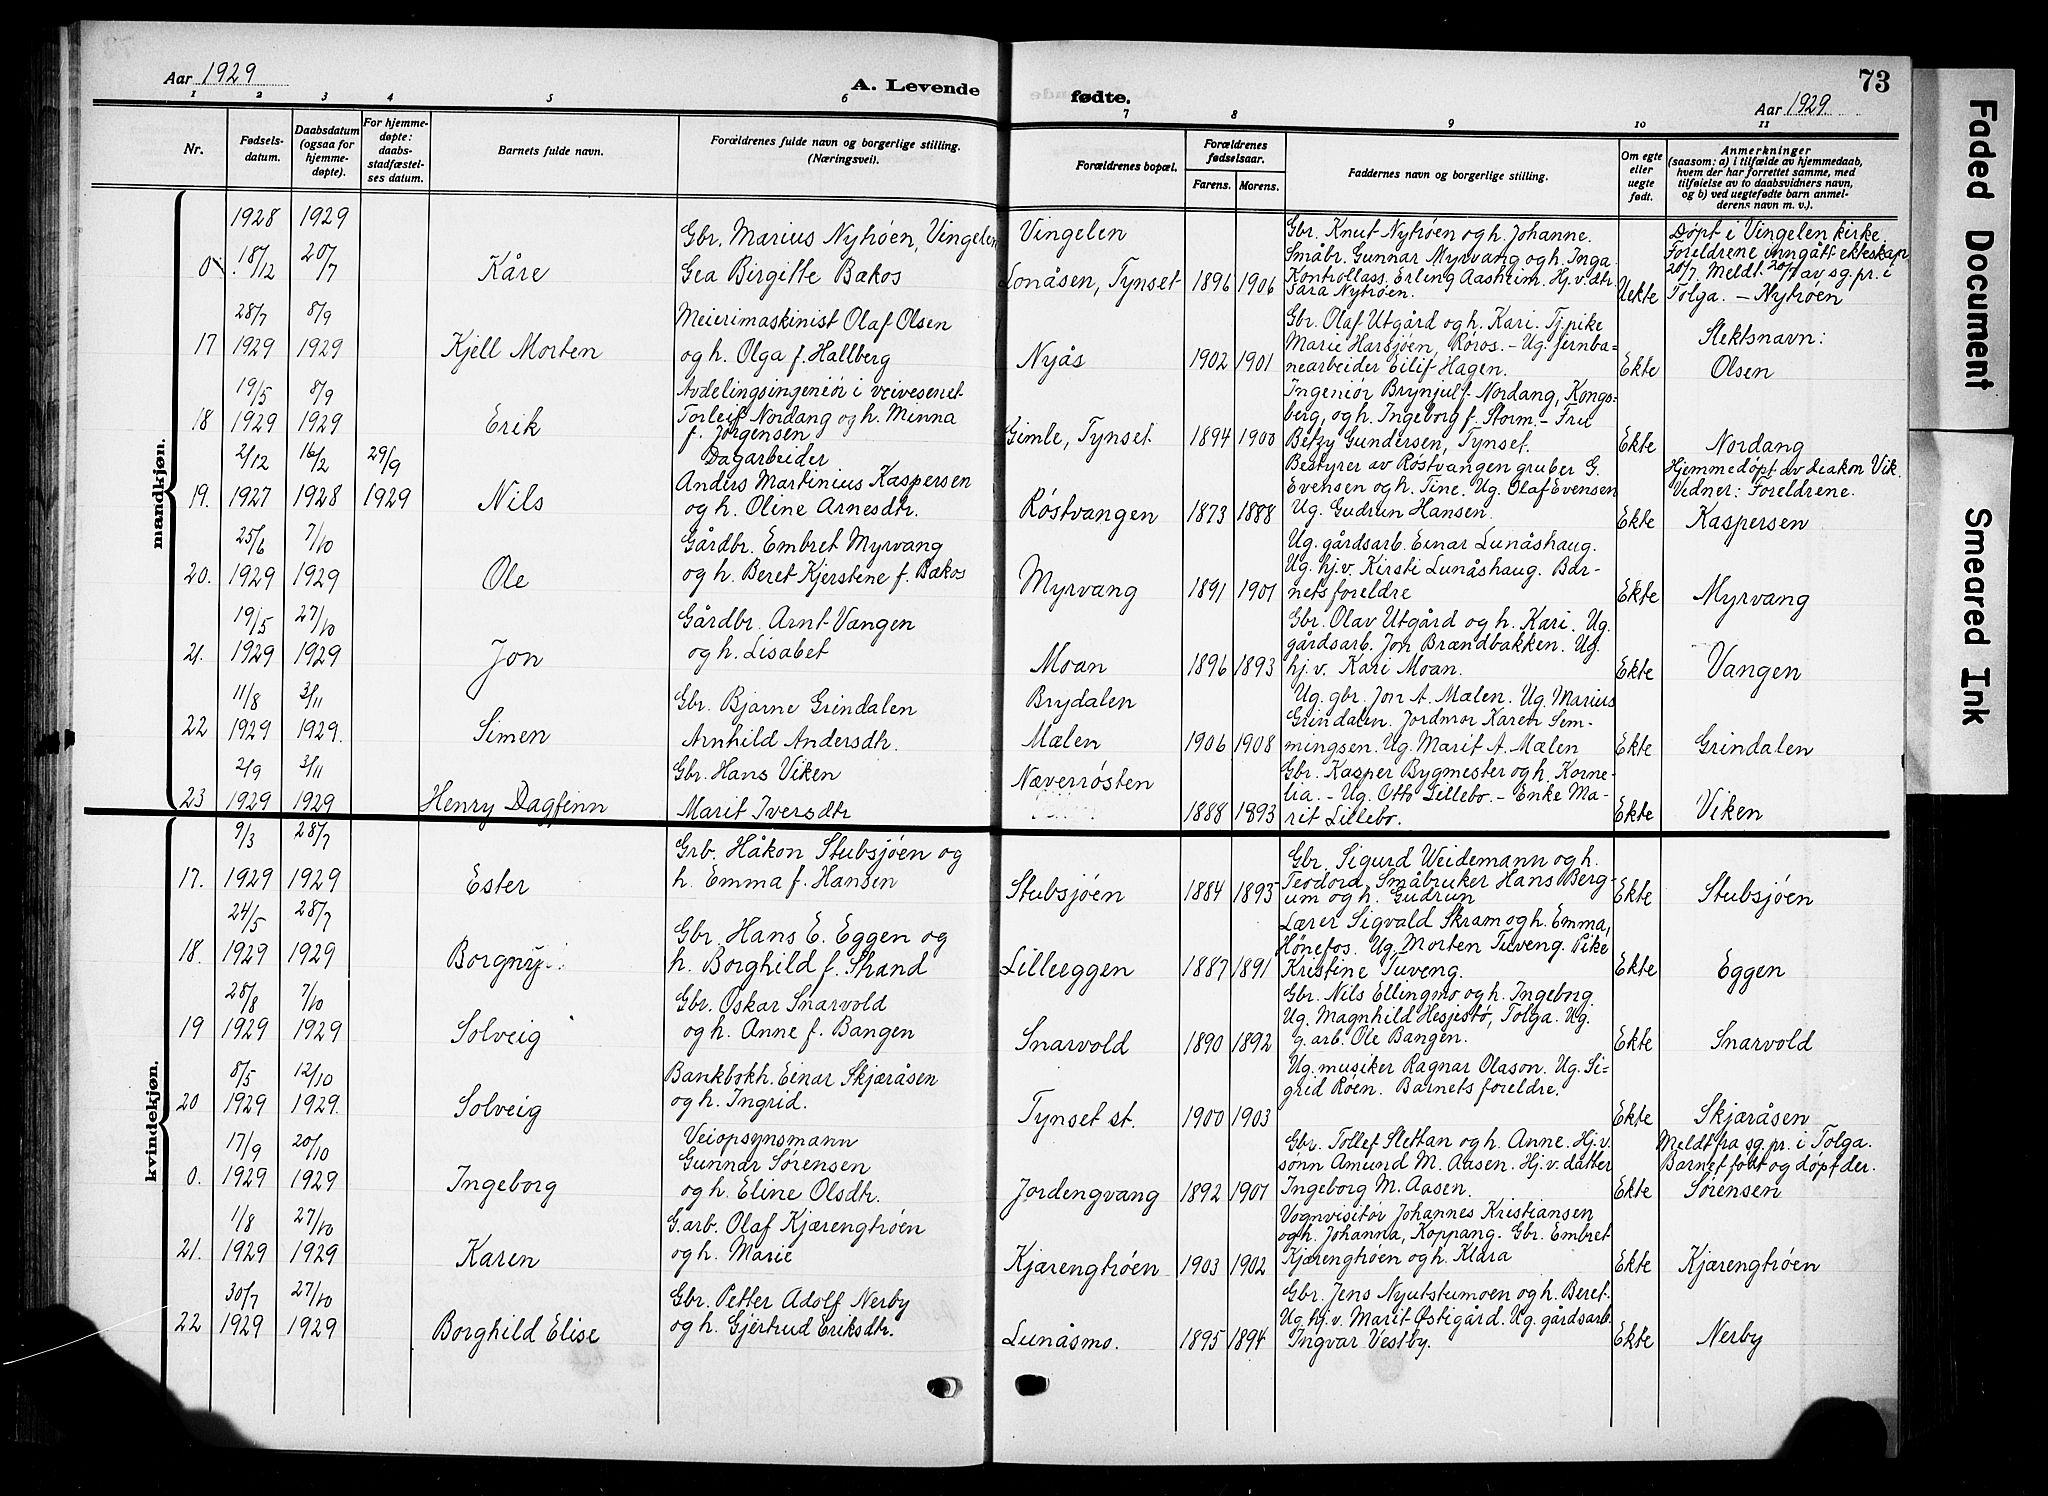 Aar 1929
A. Levende
fødte.
73
Aar 1929.
1 2 3 4 5 6 7 8 9 10 11
Nr.
Fødsels-
datum.
Daabsdatum
(ogsaa for
hjemme-
døpte).
For hjemme-
døpte:
daabs-
stadfæstel-
ses datum.
Barnets fulde navn.
Forældrenes fulde navn og borgerlige stilling.
(Næringsvei).
Forældrenes bopæl.
Forældrenes
fødselsaar.
Farens. Morens.
Faddernes navn og borgerlige stilling.
Om egte
eller
uegte
født.
Anmerkninger
(saasom: a) i tilfælde av hjemmedaab,
hvem der har forrettet samme, med
tilføielse av to daabsvidners navn,
og b) ved uegtefødte barn anmel-
derens navn m. v.).
mandkjøn.
1928 1929
0 18/12 20/7 Kåre
Gbr. Marius Nytrøen, Vingelen
Gea Birgitte Bækos
Vingelen
Lonåsen, Tynset 1896 1906
Gbr. Knut Nytrøen og h. Johanne.
Småbr. Gunnar Myrvang og h. Inga.
Kontrollass. Erling Aasheim. Hj.v.dtr.
Sara Nytrøen.
Uekte
Døpt i Vingelen kirke.
Foreldrene inngått ekteskap
20/7. Meldt 20/7 av sg.pr. i
Tolga. – Nytrøen
28/7 8/9
17 1929 1929 Kjell Morten
Meierimaskinist Olaf Olsen
og h. Olga f. Hallberg
Nyås 1902 1901
Gbr. Olaf Utgård og h. Kari. Tj.pike
Marie Harsjøen, Røros. – Ug. jernba-
nearbeider Eilif Hagen.
Ekte
Slektsnavn:
Olsen
19/5 8/9
18 1929 1929 Erik
Avdelingsingeniør i veivesenet
Torleif Nordang og h. Minna
f. Jørgensen
Gimle, Tynset 1894 1900
Ingeniør Brynjulf Nordang, Kongs-
berg, og h. Ingeborg f. Storm. – Fru
Betzy Gundersen, Tynset.
Ekte Nordang
2/12 16/2 29/9
19. 1927 1928 1929 Nils
Dagarbeider
Anders Martinius Kaspersen
og h. Oline Arnesdtr.
Røstvangen 1873 1888
Bestyrer av Røstvangen gruber G.
Evensen og h. Tine. Ug. Olaf Evensen
Ug. Gudrun Hansen.
Ekte
Hjemmedøpt av diakon Vik.
Vidner: Foreldrene.
Kaspersen
25/6 7/10
20. 1929 1929 Ole
Gårdbr. Embret Myrvang
og h. Beret Kjerstine f. Bækos
Myrvang 1891 1901
Ug. gårdsarb. Einar Lunåshaug.
Ug. hj.v. Kirsti Lunåshaug. Bar-
nets foreldre
Ekte Myrvang
19/5 27/10
21. 1929 1929 Jon
Gårdbr. Arnt Vangen
og h. Lisabet
Moan 1896 1893
Gbr. Olav Utgård og h. Kari. Ug.
gårdsarb. Jon Brændbakken. Ug.
hj.v. Kari Moan.
Ekte Vangen
11/8 3/11
22 1929 1929. Simen
Gbr. Bjarne Grindalen
Arnhild Andersdtr.
Brydalen
Mælen 1906 1908
Ug. gbr. Jon A. Mælen. Ug. Marius
Grindalen. Jordmor Karen Sem-
mingsen. Ug. Marit A. Mælen
Ekte Grindalen
2/9 3/11
23 1929 1929 Henry Dagfinn
Gbr. Hans Viken
Marit Iversdtr
Næverrøsten
1888 1893
Gbr. Kasper Bygmester og h. Korne-
lia. – Ug. Otto Lillebo. – Enke Ma-
rit Lillebo.
Ekte Viken
kvindekjøn.
9/3 28/7
17. 1929 1929 Ester
Grb. Håkon Stubsjøen og
h. Emma f. Hansen
Stubsjøen 1884 1893
Gbr. Sigurd Weidemann og h.
Teodora. Småbruker Hans Berg-
um og h. Gudrun
Ekte Stubsjøen
24/5 28/7
18. 1929 1929 Borgny
Gbr. Hans E. Eggen og
h. Borghild f. Strand
Lilleeggen 1887 1891
Lærer Sigvald Skram og h. Emma,
Hønefos. Ug. Morten Tuveng. Pike
Kristine Tuveng.
Ekte Eggen
28/8 7/10
19 1929 1929 Solveig
Gbr. Oskar Snarvold
og h. Anne f. Bangen
Snarvold 1890 1892
Gbr. Nils Ellingmo og h. Ingeborg.
Ug. Magnhild Hesjestø, Tolga. Ug.
g.arb. Ole Bangen.
Ekte Snarvold
8/5 12/10
20 1929 1929. Solveig
Bankbokh. Einar Skjæråsen
og h. Ingrid.
Tynset st. 1900 1903
Ug. musiker Ragnar Olason. Ug. Si-
grid Røen. Barnets foreldre.
Ekte Skjæråsen
17/9 20/10
0. 1929 1929 Ingeborg
Veiopsynsmann
Gunnar Sørensen
og h. Eline Olsdtr.
Jordengvang 1892 1901
Gbr. Tollef Slettan og h. Anne. Hj.v.
sønn Amund M. Aasen. Hj.v. datter
Ingeborg M. Aasen.
Ekte
Meldt fra sg.pr. i Tolga.
Barnet født og døpt der.
Sørensen
1/8 27/10
21. 1929 1929 Karen
G.arb. Olaf Kjærengtrøen
og h. Marie
Kjærengtrøen 1903 1902
Vognvisitør Johannes Kristiansen
og h. Johanna, Koppang. Gbr. Embret
Kjærengtrøen og h. Klara
Ekte Kjærengtrøen
30/7 27/10
22 1929 1929 Borghild Elise
Gbr. Petter Adolf Nerby
og h. Gjertrud Eriksdtr.
Lunåsmo. 1895 1894
Gbr. Jens Nyutstumoen og h. Beret.
Ug. hj.v. Marit Østigård. Ug. gårdsarb.
Ingvar Vestby.
Ekte Nerby
Faded Document
Smeared Ink